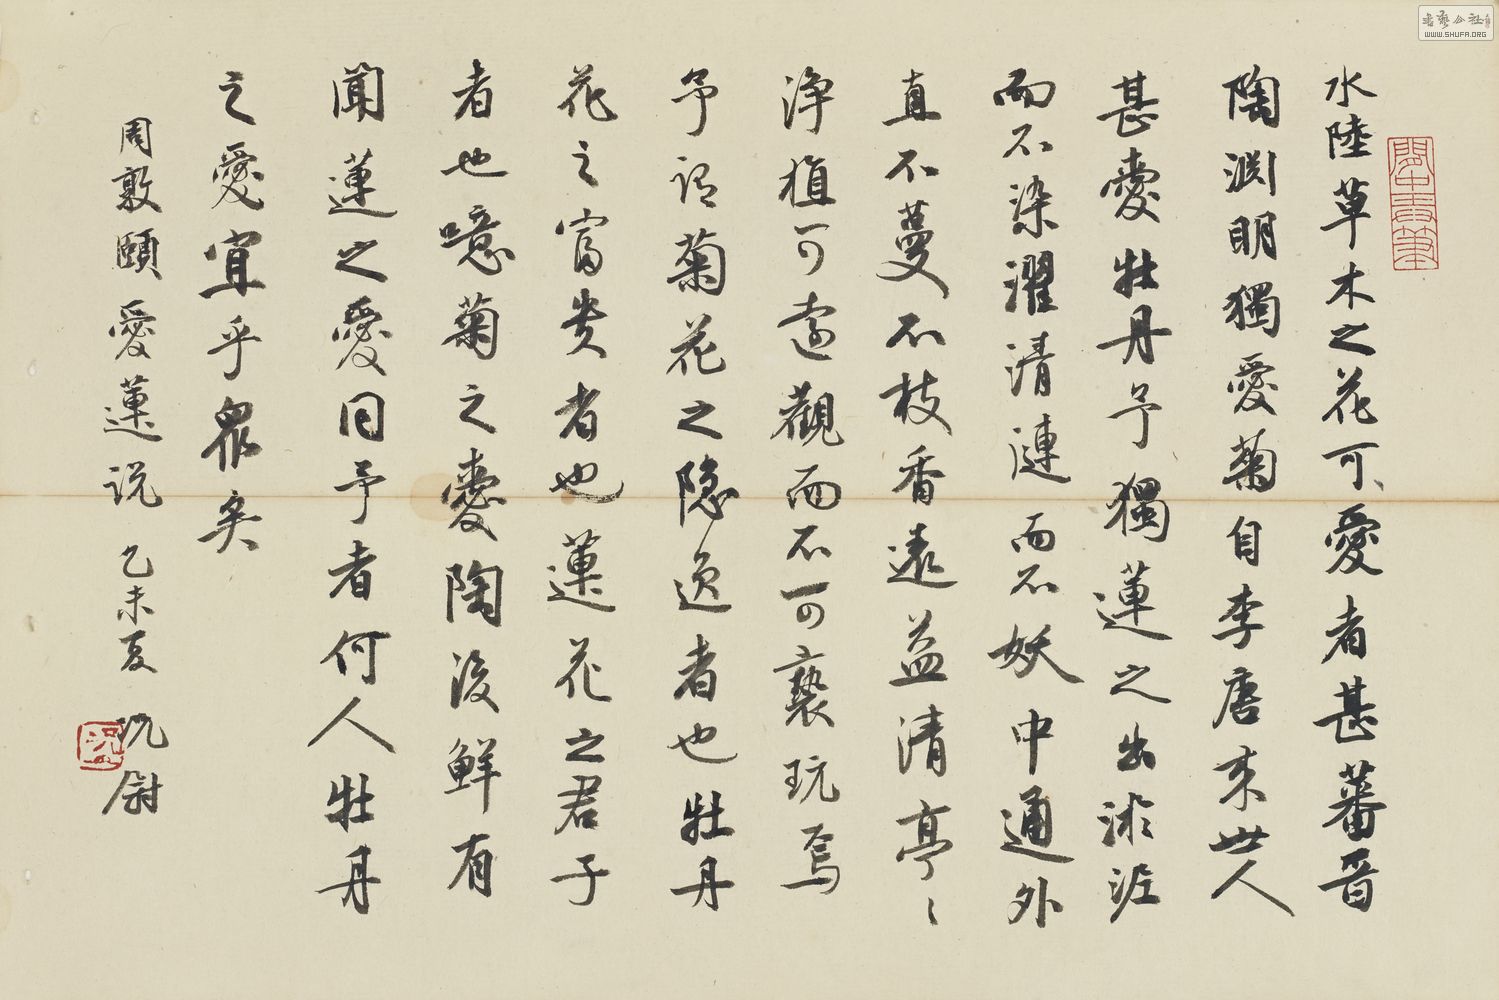 水陸草木之花可愛者甚蕃晋
陶渊明獨愛菊自李唐来世人
甚愛牡丹予獨蓮之出淤泥
而不染濯清漣而不妖中通外
直不蔓不枝香遠益清亭〻
淨植可遠觀而不可褻玩焉
予谓菊花之隐逸者也牡丹
花之富贵者也蓮花之君子
者也噫菊之愛陶後鮮有
聞蓮之愛同予者何人牡丹
之愛宜乎眾矣
周敦頤愛蓮说 乙未夏 沈尉
書藝公社
WWW.SHUFA.ORG